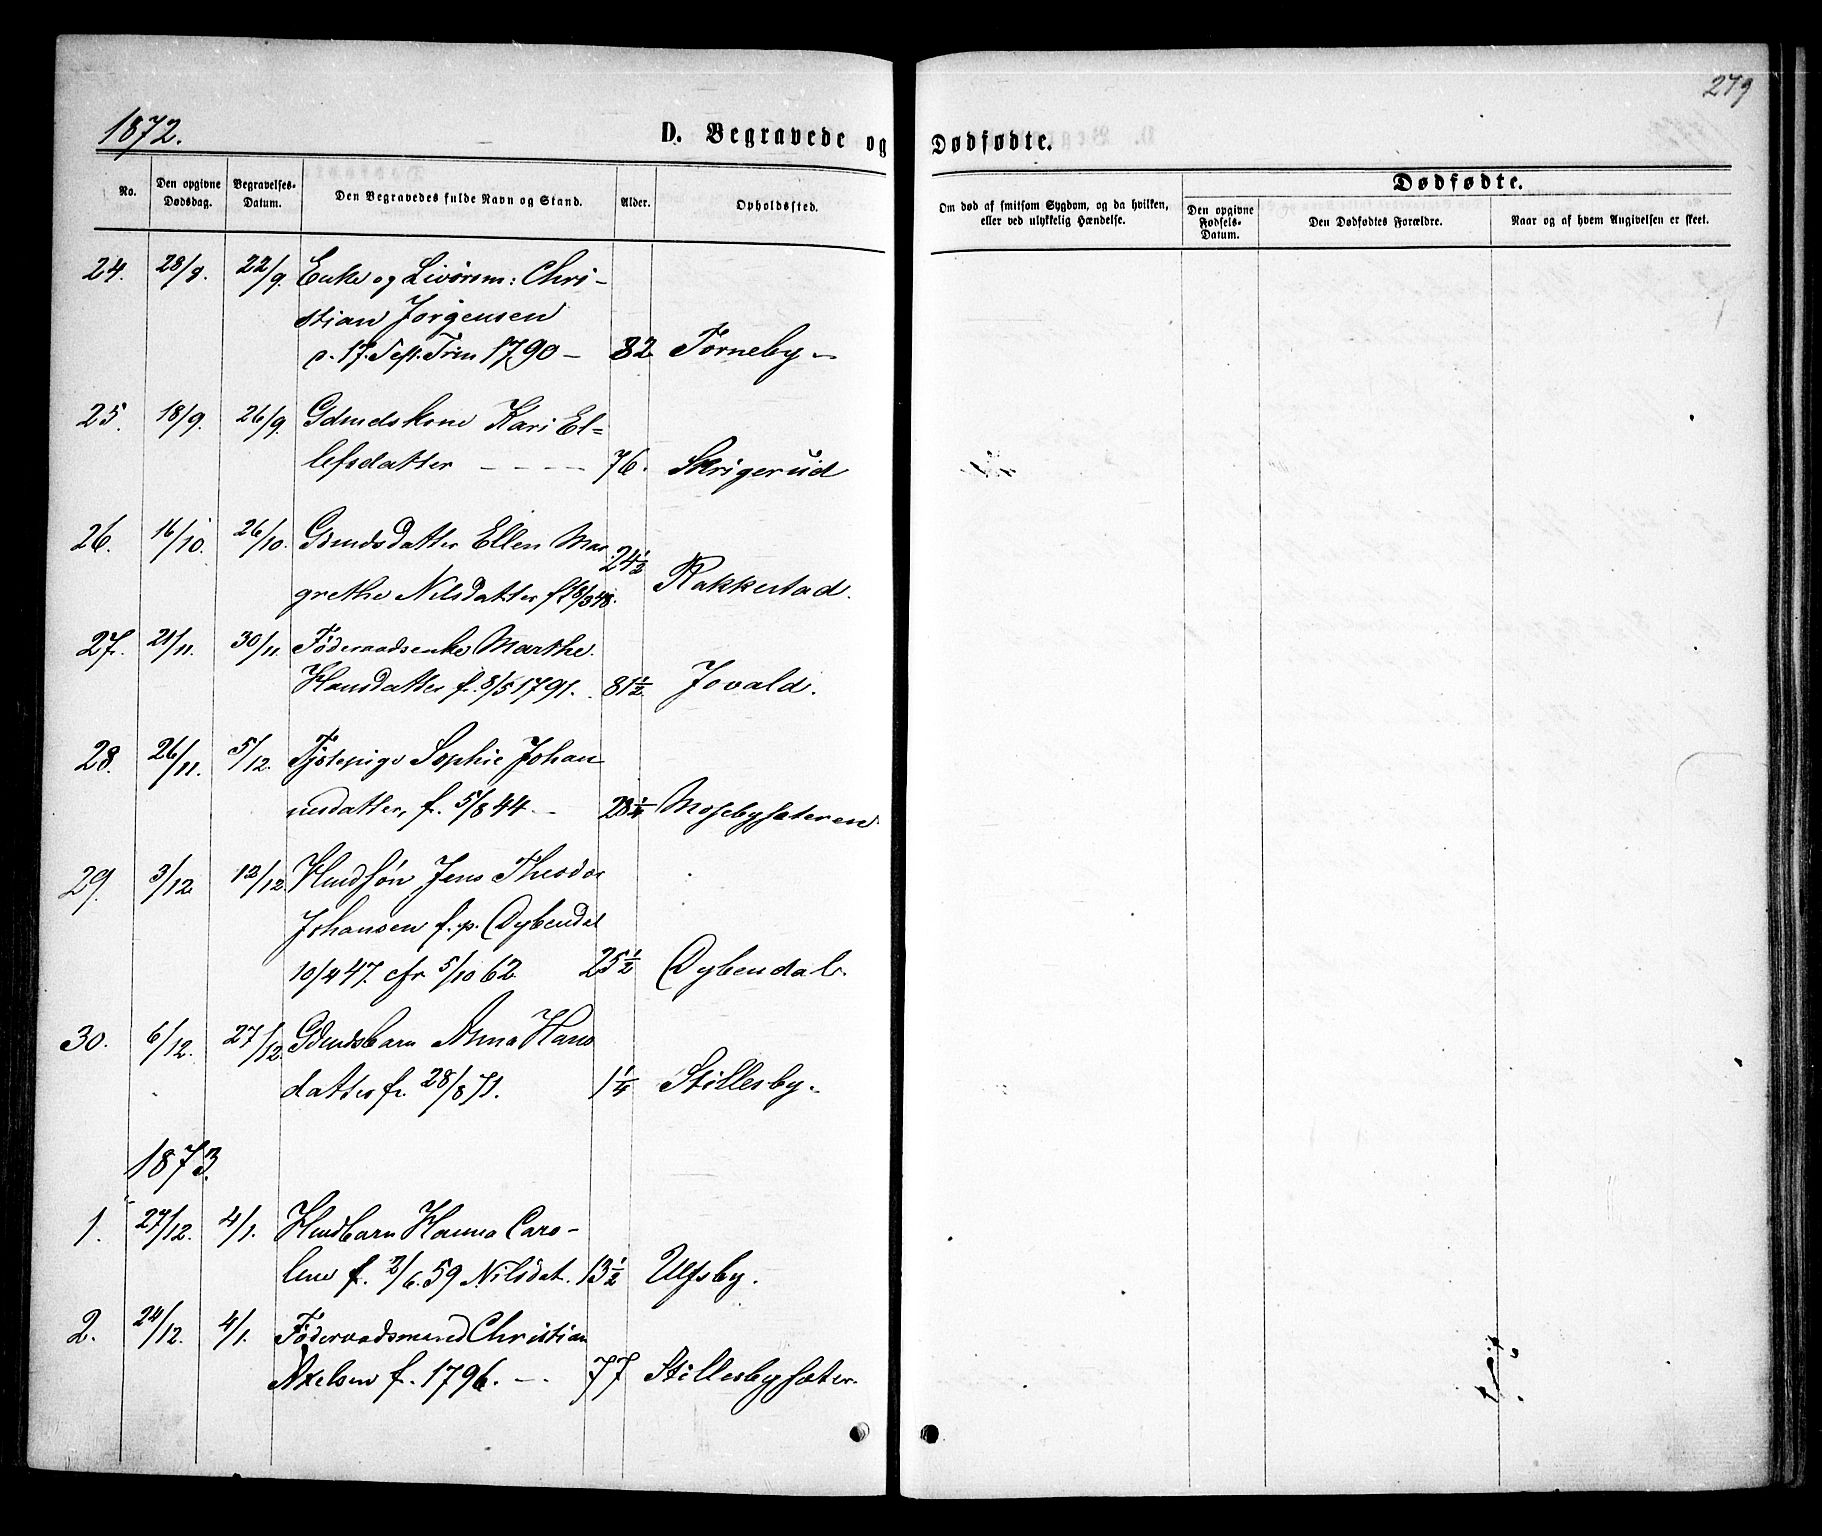 279
1872.
D. Begravede og Dødfødte.
No.
Den opgivne Dødsdag.
Begravelses-Datum.
Den Begravedes fulde Navn og Stand.
Alder.
Opholdssted.
Om død af smitsom Sygdom, og da hvilken, eller ved ulykkelig Hændelse.
Dødfødte.
Den opgivne Fødsels-Datum.
Den Dødfødtes Forældre.
Naar og af hvem Angivelsen er skeet.
24. 28/8. 22/9. Enke og Livørsm: Chri-
stian Jørgensen
17. Trin 1790 - 82 Torneby -
25. 18/9. 26/9. Gdmdskone Kari El=
lefsdatter - - - - 76. Skrigerud
26. 16/10. 26/10. Gdmdsdatter Ellen Mar
grethe Nilsdatter f. 18/3 48. 24½ Rakkestad.
27. 21/11. 30/11. Føderaadsenke Marthe
Hansdatter f. 8/5 1791. 81½ Jovald.
28. 26/11. 5/12. Tjstepige Sophie Johan
nesdatter, f. 5/8 44 - 28¼ Mosebysæteren
29. 3/12 12/12. Hmdsøn Jens Theodor
Johansen f. p. Dybendal
10/4 47. cfr 5/10 62. 25½ Dybendal.
30. 6/12. 27/12. Gdmdsbarn Anna Hans
datter f. 28/8 71. 1¼ Stillesby.
1873.
1. 27/12. 4/1. Hmdbarn Hanna Caro-
line f. 2/6. 59 Nilsdat. 13½ Ulfsby.
2. 24/12. 4/1. Føderaadsmand Christian
Axelsen f. 1796. - . 77 Stillesbysæter.